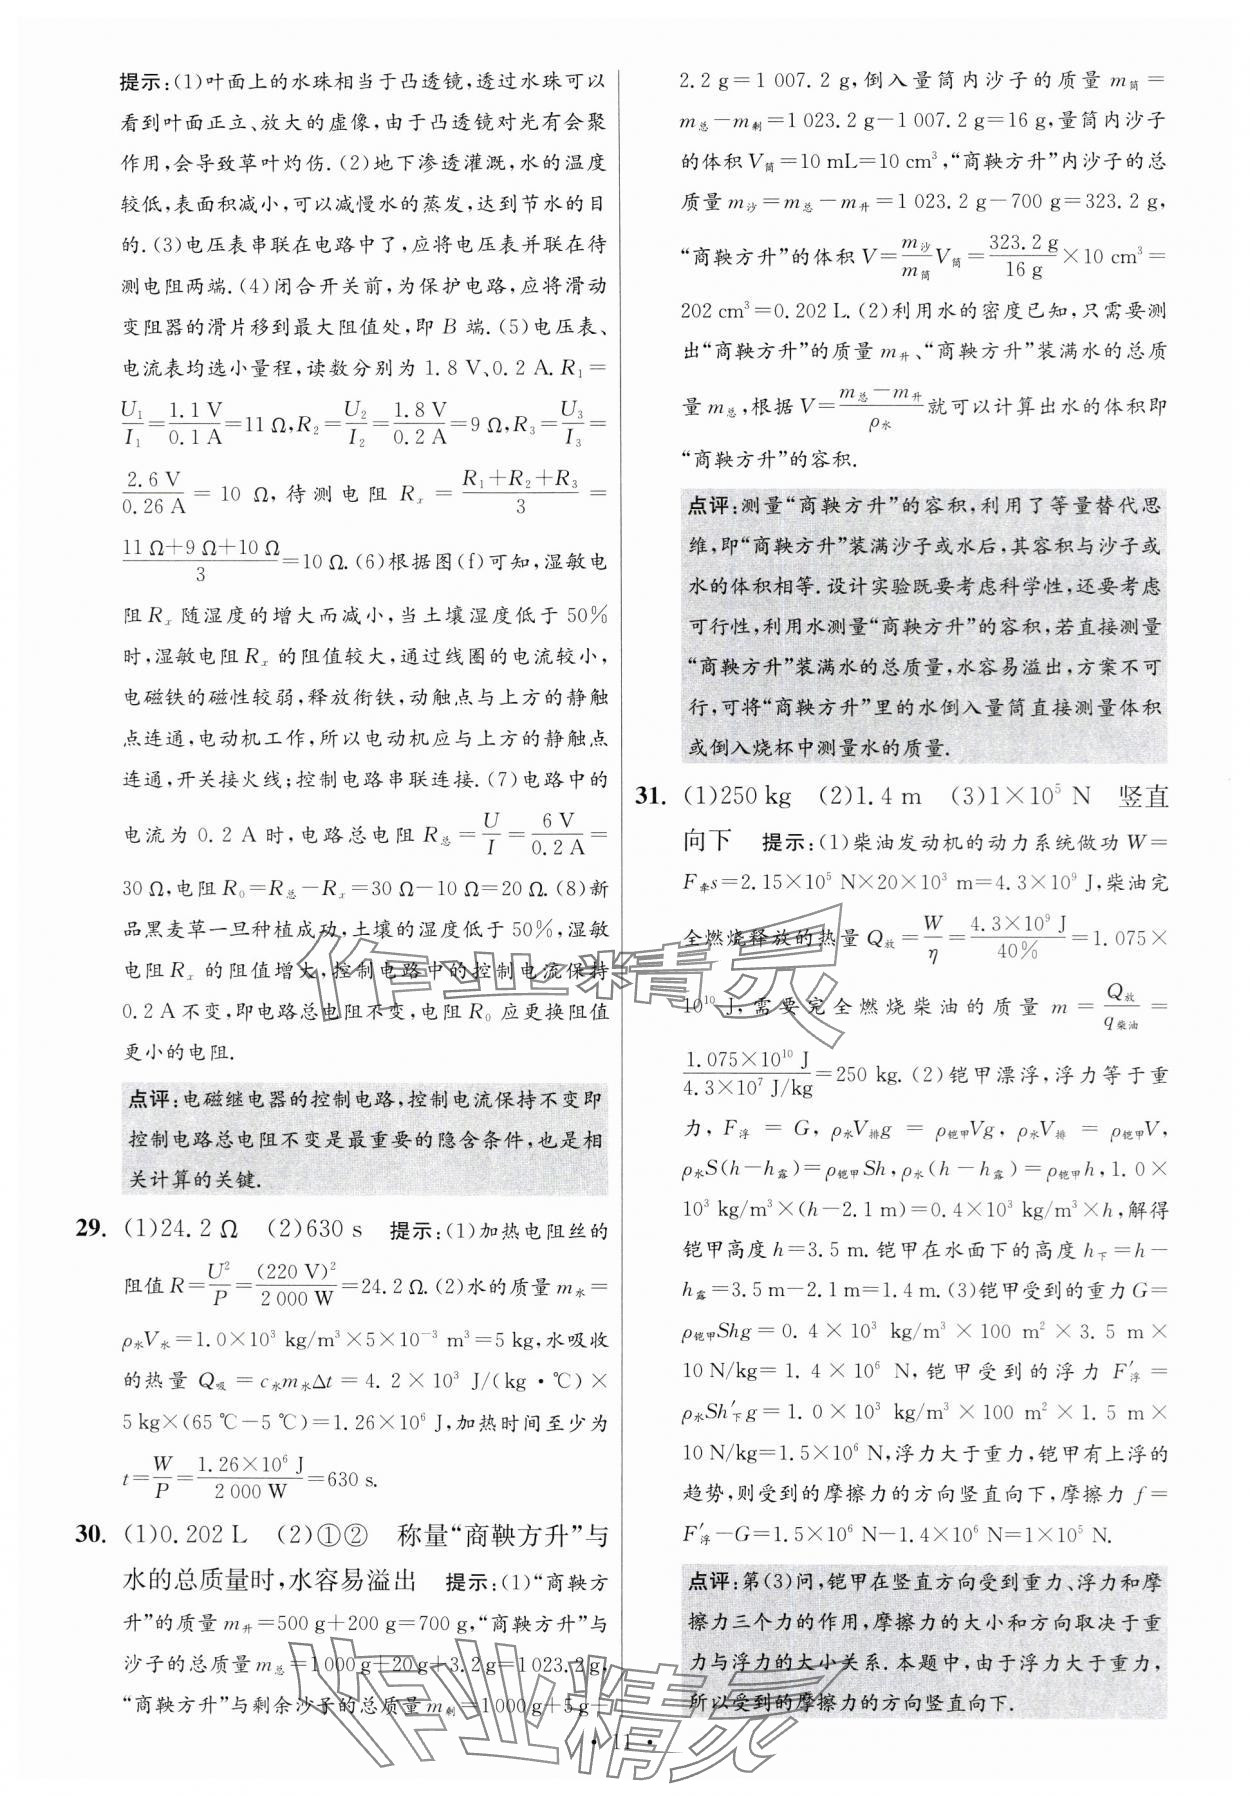 提示:(1)叶面上的水珠相当于凸透镜,透过水珠可以
看到叶面正立、放大的虚像,由于凸透镜对光有会聚
作用,会导致草叶灼伤.(2)地下渗透灌溉,水的温度
较低,表面积减小,可以减慢水的蒸发,达到节水的目
的.(3)电压表串联在电路中了,应将电压表并联在待
测电阻两端.(4)闭合开关前,为保护电路,应将滑动
变阻器的滑片移到最大阻值处,即 B 端.(5)电压表、
电流表均选小量程,读数分别为 1.8 V、0.2 A. R₁=
U₁/I₁=1.1 V/0.1 A=11 Ω,R₂=U₂/I₂=1.8 V/0.2 A=9 Ω,R₃=U₃/I₃=
2.6 V/0.26 A=10 Ω,待测电阻 Rₓ=(R₁+R₂+R₃)/3=
(11 Ω+9 Ω+10 Ω)/3=10 Ω.(6)根据图(f)可知,湿敏电
阻 Rₓ 随湿度的增大而减小,当土壤湿度低于 50%
时,湿敏电阻 Rₓ 的阻值较大,通过线圈的电流较小,
电磁铁的磁性较弱,释放衔铁,动触点与上方的静触
点连通,电动机工作,所以电动机应与上方的静触点
连通,开关接火线;控制电路串联连接.(7)电路中的
电流为 0.2 A 时,电路总电阻 R总=U/I=6 V/0.2 A=
30 Ω,电阻 R₀=R总-Rₓ=30 Ω-10 Ω=20 Ω.(8)新
品黑麦草一旦种植成功,土壤的湿度低于50%,湿敏
电阻 Rₓ 的阻值增大,控制电路中的控制电流保持
0.2 A 不变,即电路总电阻不变,电阻 R₀ 应更换阻值
更小的电阻.
点评:电磁继电器的控制电路,控制电流保持不变即
控制电路总电阻不变是最重要的隐含条件,也是相
关计算的关键.
29. (1)24.2 Ω (2)630 s 提示:(1)加热电阻丝的
阻值 R=U²/P=(220 V)²/2 000 W=24.2 Ω.(2)水的质量 m水=
ρ水V水=1.0×10³ kg/m³×5×10⁻³ m³=5 kg,水吸收
的热量 Q吸=c水m水Δt=4.2×10³ J/(kg·℃)×
5 kg×(65 ℃-5 ℃)=1.26×10⁶ J,加热时间至少为
t=W/P=1.26×10⁶ J/2 000 W=630 s.
30. (1)0.202 L (2)①② 称量“商鞅方升”与
水的总质量时,水容易溢出 提示:(1)“商鞅方
升”的质量 m升=500 g+200 g=700 g,“商鞅方升”与
沙子的总质量 m总=1 000 g+20 g+3.2 g=1 023.2 g,
“商鞅方升”与剩余沙子的总质量 m剩=1 000 g+5 g+
2.2 g=1 007.2 g,倒入量筒内沙子的质量 m筒=
m总-m剩=1 023.2 g-1 007.2 g=16 g,量筒内沙子
的体积 V筒=10 mL=10 cm³,“商鞅方升”内沙子的总
质量 m沙=m总-m升=1 023.2 g-700 g=323.2 g,
“商鞅方升”的体积 V=m沙/m筒 V筒=323.2 g/16 g×10 cm³=
202 cm³=0.202 L.(2)利用水的密度已知,只需要测
出“商鞅方升”的质量 m升、“商鞅方升”装满水的总质
量 m总,根据 V=(m总-m升)/ρ水 就可以计算出水的体积即
“商鞅方升”的容积.
点评:测量“商鞅方升”的容积,利用了等量替代思
维,即“商鞅方升”装满沙子或水后,其容积与沙子或
水的体积相等.设计实验既要考虑科学性,还要考虑
可行性,利用水测量“商鞅方升”的容积,若直接测量
“商鞅方升”装满水的总质量,水容易溢出,方案不可
行,可将“商鞅方升”里的水倒入量筒直接测量体积
或倒入烧杯中测量水的质量.
31. (1)250 kg (2)1.4 m (3)1×10⁵ N 竖直
向下 提示:(1)柴油发动机的动力系统做功 W=
F牵s=2.15×10⁵ N×20×10³ m=4.3×10⁹ J,柴油完
全燃烧释放的热量 Q放=W/η=4.3×10⁹ J/40%=1.075×
10¹⁰ J,需要完全燃烧柴油的质量 m=Q放/q柴油=
1.075×10¹⁰ J/4.3×10⁷ J/kg=250 kg.(2)铠甲漂浮,浮力等于重
力,F浮=G,ρ水V排g=ρ铠甲Vg,ρ水V排=ρ铠甲V,
ρ水S(h-h露)=ρ铠甲Sh,ρ水(h-h露)=ρ铠甲h,1.0×
10³ kg/m³×(h-2.1 m)=0.4×10³ kg/m³×h,解得
铠甲高度 h=3.5 m.铠甲在水面下的高度 h下=h-
h露=3.5 m-2.1 m=1.4 m.(3)铠甲受到的重力 G=
ρ铠甲Shg=0.4×10³ kg/m³×100 m²×3.5 m×
10 N/kg=1.4×10⁶ N,铠甲受到的浮力 F′浮=
ρ水Sh′下g=1.0×10³ kg/m³×100 m²×1.5 m×
10 N/kg=1.5×10⁶ N,浮力大于重力,铠甲有上浮的
趋势,则受到的摩擦力的方向竖直向下,摩擦力 f=
F′浮-G=1.5×10⁶ N-1.4×10⁶ N=1×10⁵ N.
点评:第(3)问,铠甲在竖直方向受到重力、浮力和摩
擦力三个力的作用,摩擦力的大小和方向取决于重
力与浮力的大小关系.本题中,由于浮力大于重力,
所以受到的摩擦力的方向竖直向下.
作业精灵
作业精灵
• 11 •